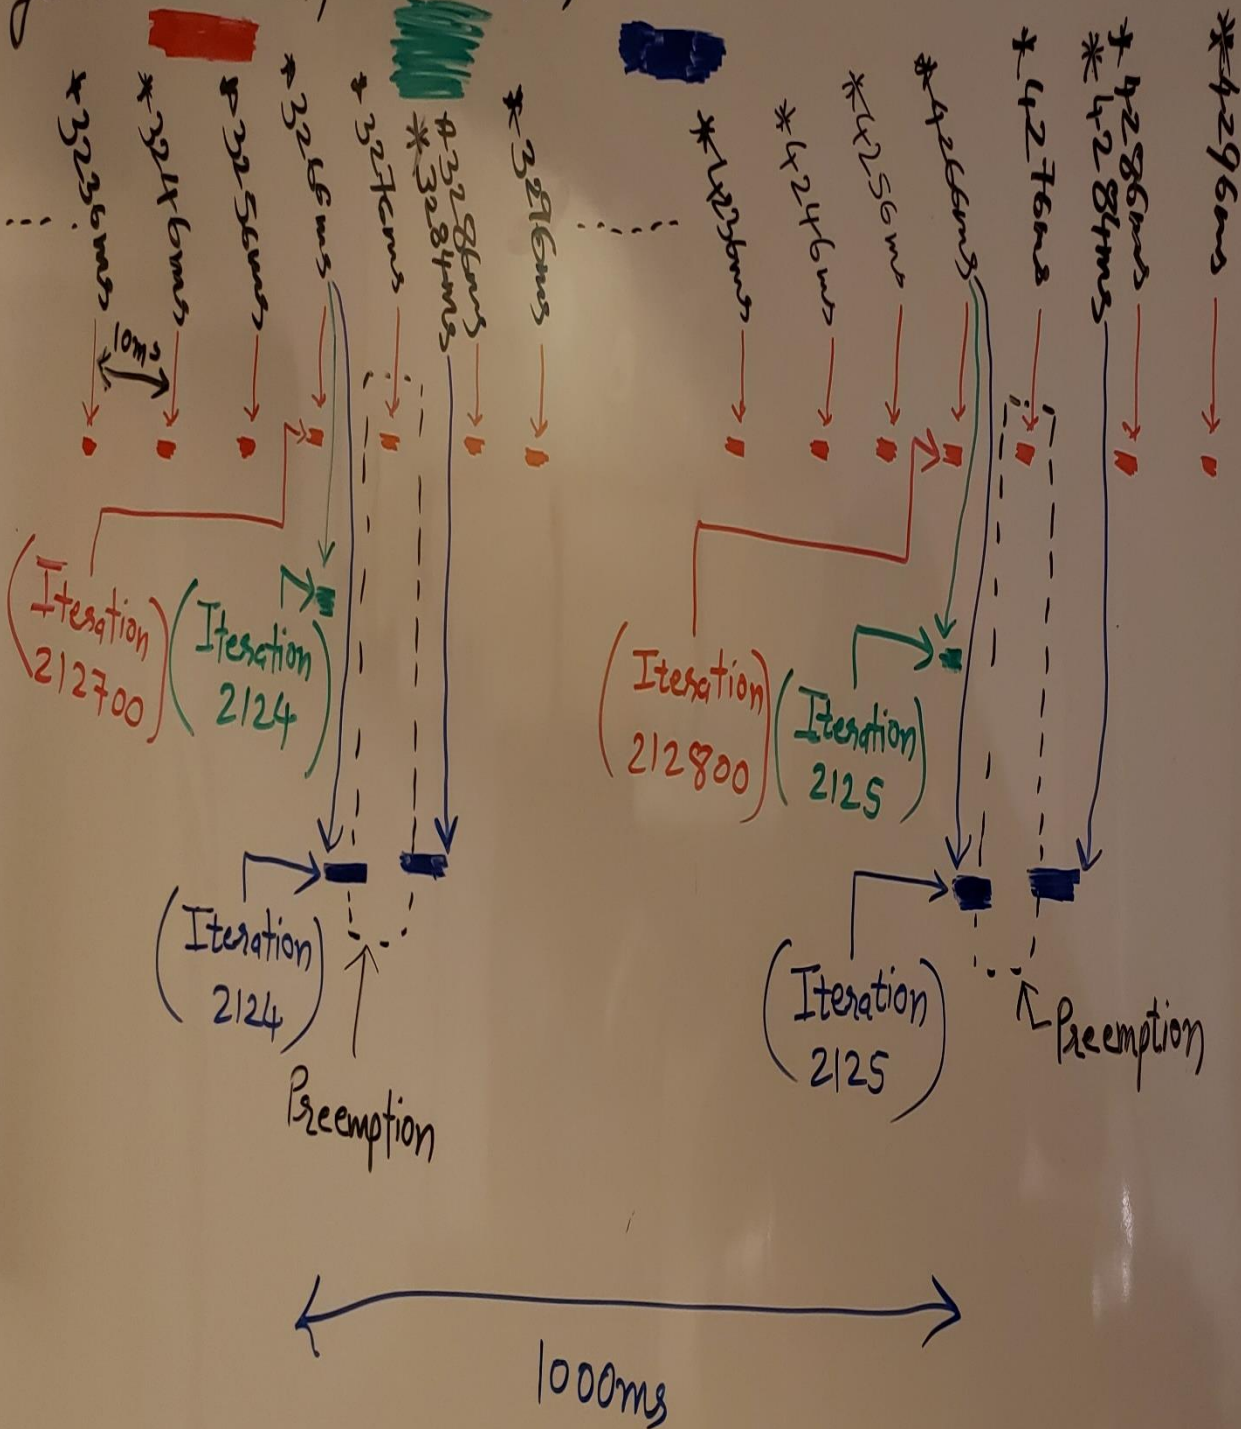 *3236ms
*3246ms
*3256ms
*3266ms
*3276ms
*3286ms
*3284ms
*3296ms
......
*4236ms
*4246ms
*4256ms
*4266ms
*4276ms
*4286ms
*4284ms
*4296ms
10ms
(Iteration
212700)
(Iteration
2124)
(Iteration
212800)
(Iteration
2125)
(Iteration
2124)
(Iteration
2125)
Preemption
Preemption
1000ms